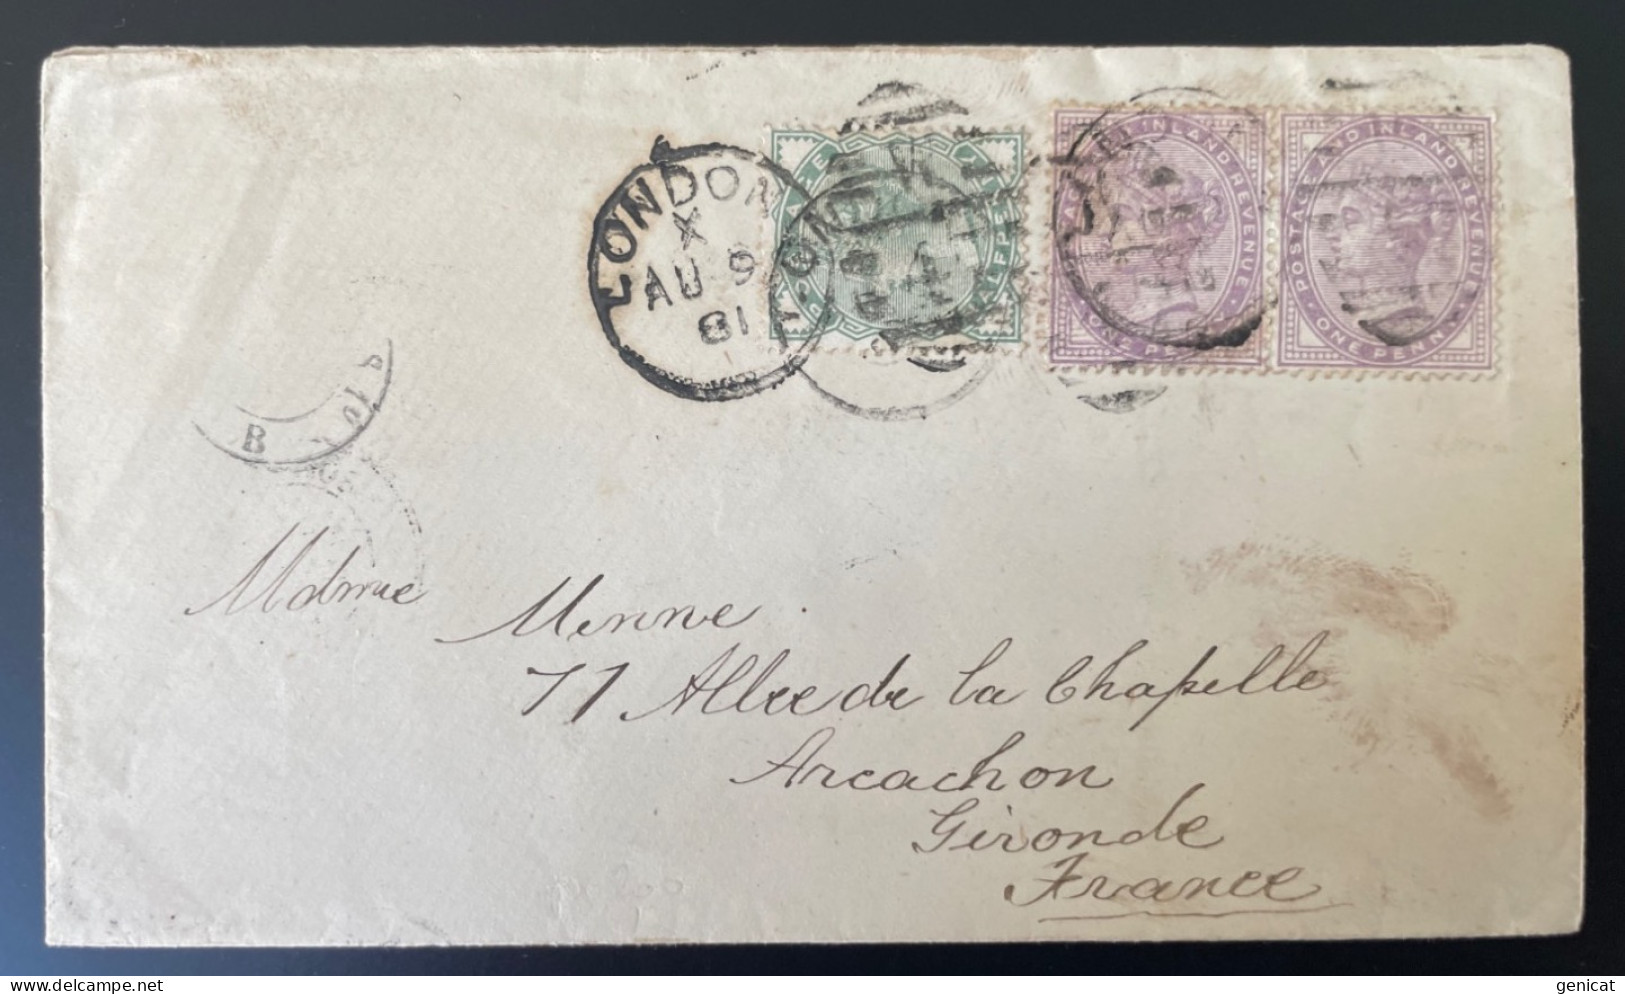 LONDON
X
AU 9
81
POSTAGE AND INLAND REVENUE
ONE PENNY
POSTAGE AND INLAND REVENUE
ONE PENNY
B
Mdmue Menne
77 Allee de la Chapelle
Arcachon
Gironde
France
genicat
delcampe.net